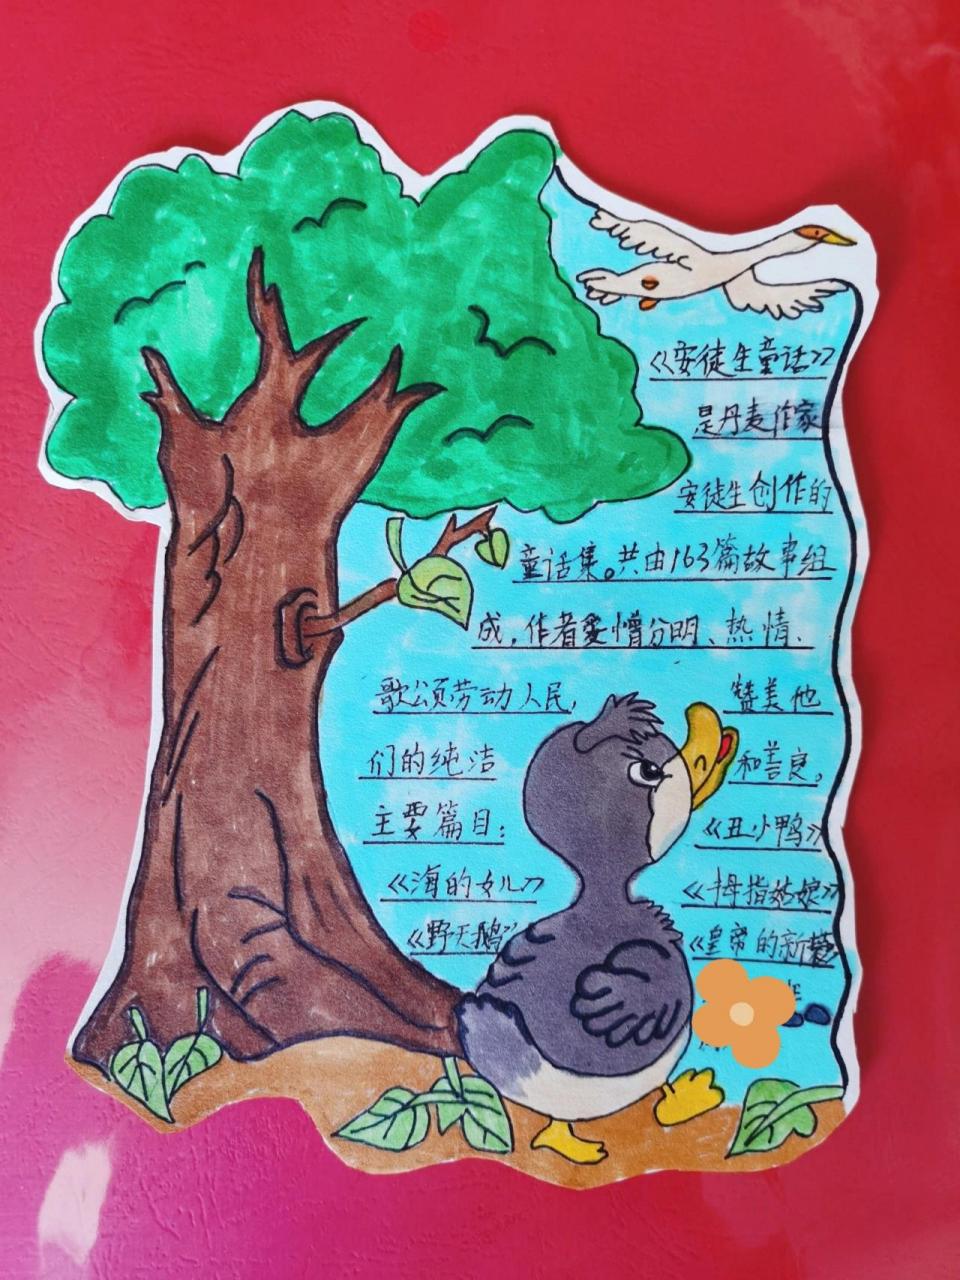 《安徒生童话》
是丹麦作家
安徒生创作的
童话集。共由163篇故事组
成,作者爱憎分明、热情、
歌颂劳动人民, 赞美他
们的纯洁 和善良。
主要篇目: 《丑小鸭》
《海的女儿》 《拇指姑娘》
《野天鹅》 《皇帝的新